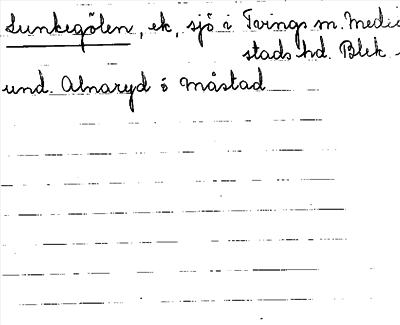 Sunkegölen, ek, sjö i Tvings sn. Medel
stads hd. Blek
und. Alnaryd ö måstad